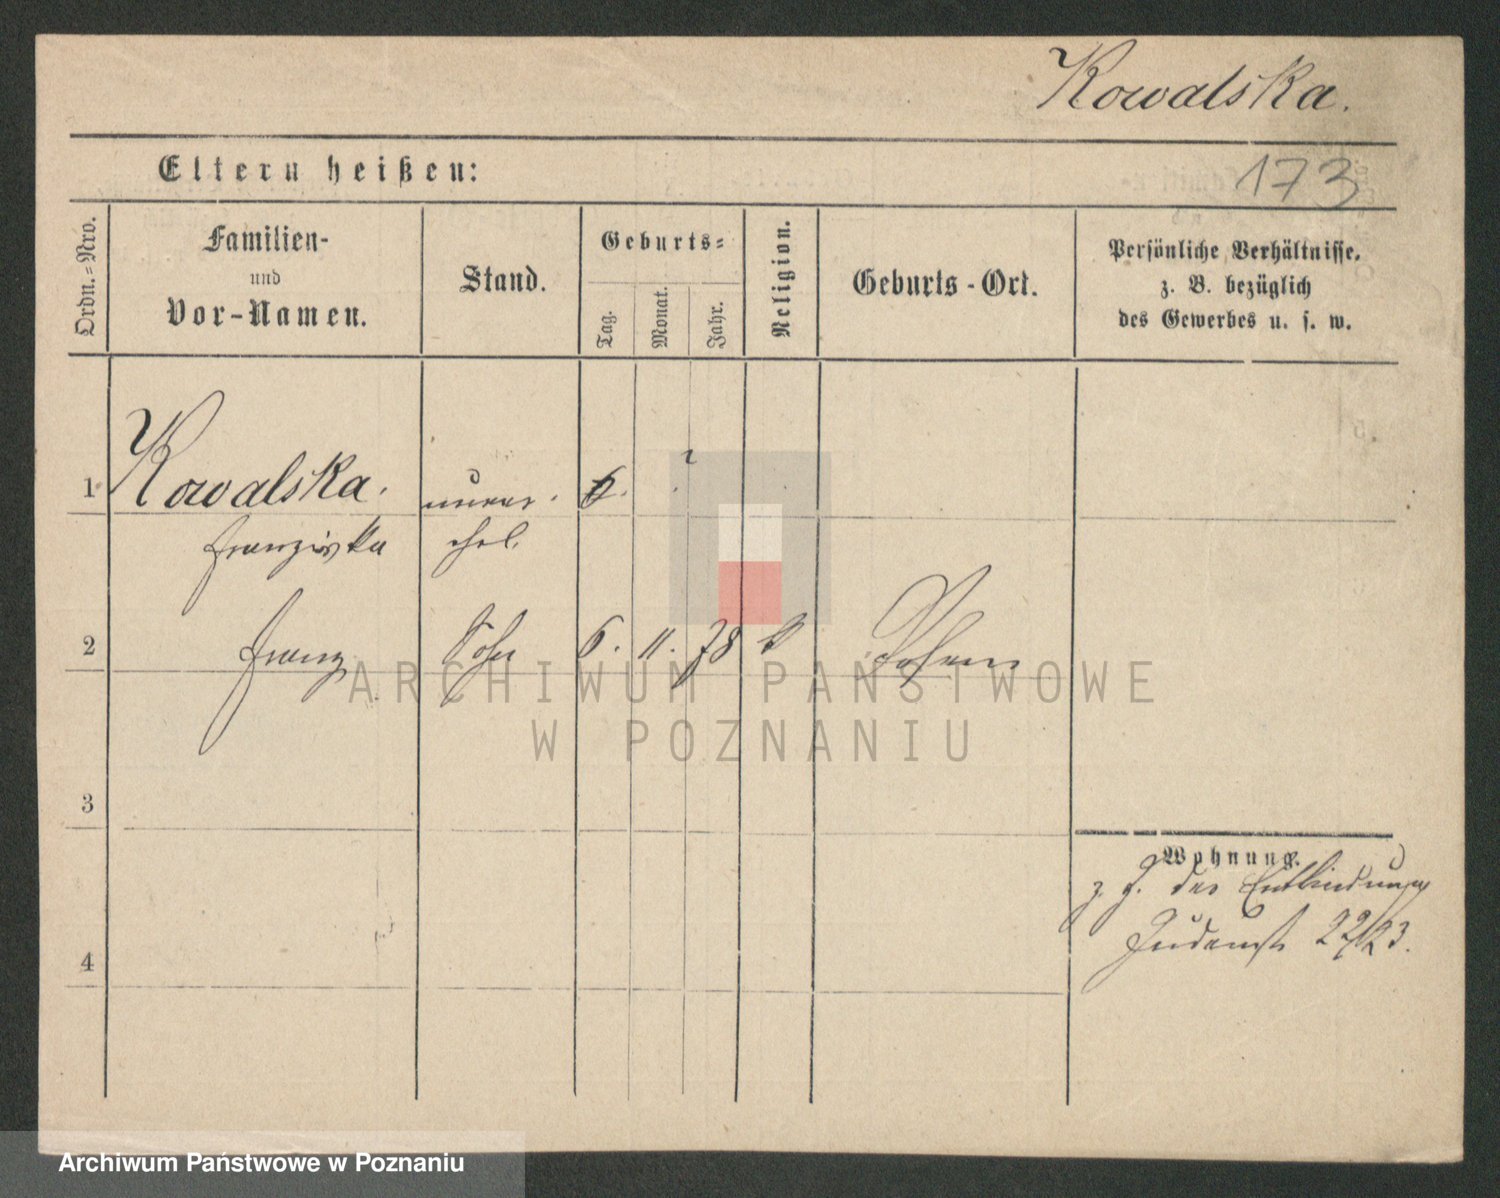 Kowalska.
Eltern heißen:
173
Ordn.=Nro.
Familien-
und
Vor-Namen.
Stand.
Geburts=
Tag.
Monat.
Jahr.
Religion.
Geburts-Ort.
Persönliche Verhältnisse,
z. B. bezüglich
des Gewerbes u. s. w.
1 Kowalska. unver
Franziska ehel.
2 Franz Sohn 6. 11. 78 k Posen
3
4
Wohnung.
z. Z. der Entbindung
Judenstr 22/23.
ARCHIWUM PAŃSTWOWE
W POZNANIU
Archiwum Państwowe w Poznaniu